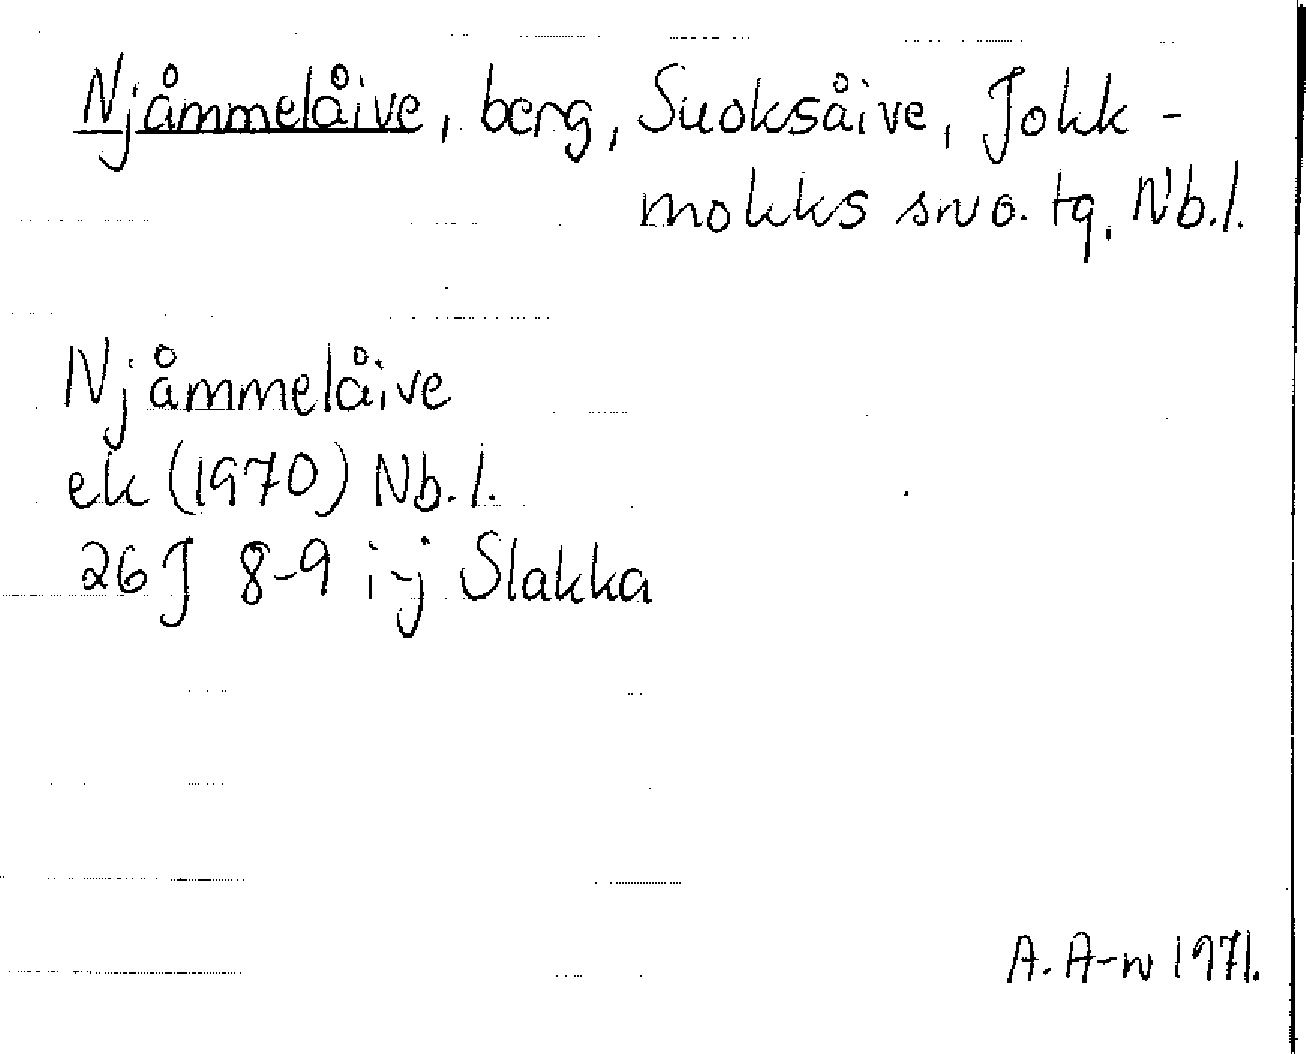 Njåmmelåive, berg, Suoksåive, Jokk-
mokks sn o. tg, Nb.l.
Njåmmelåive
ek (1970) Nb.l.
26 J 8-9 i-j Slakka
A. A-n 1971.